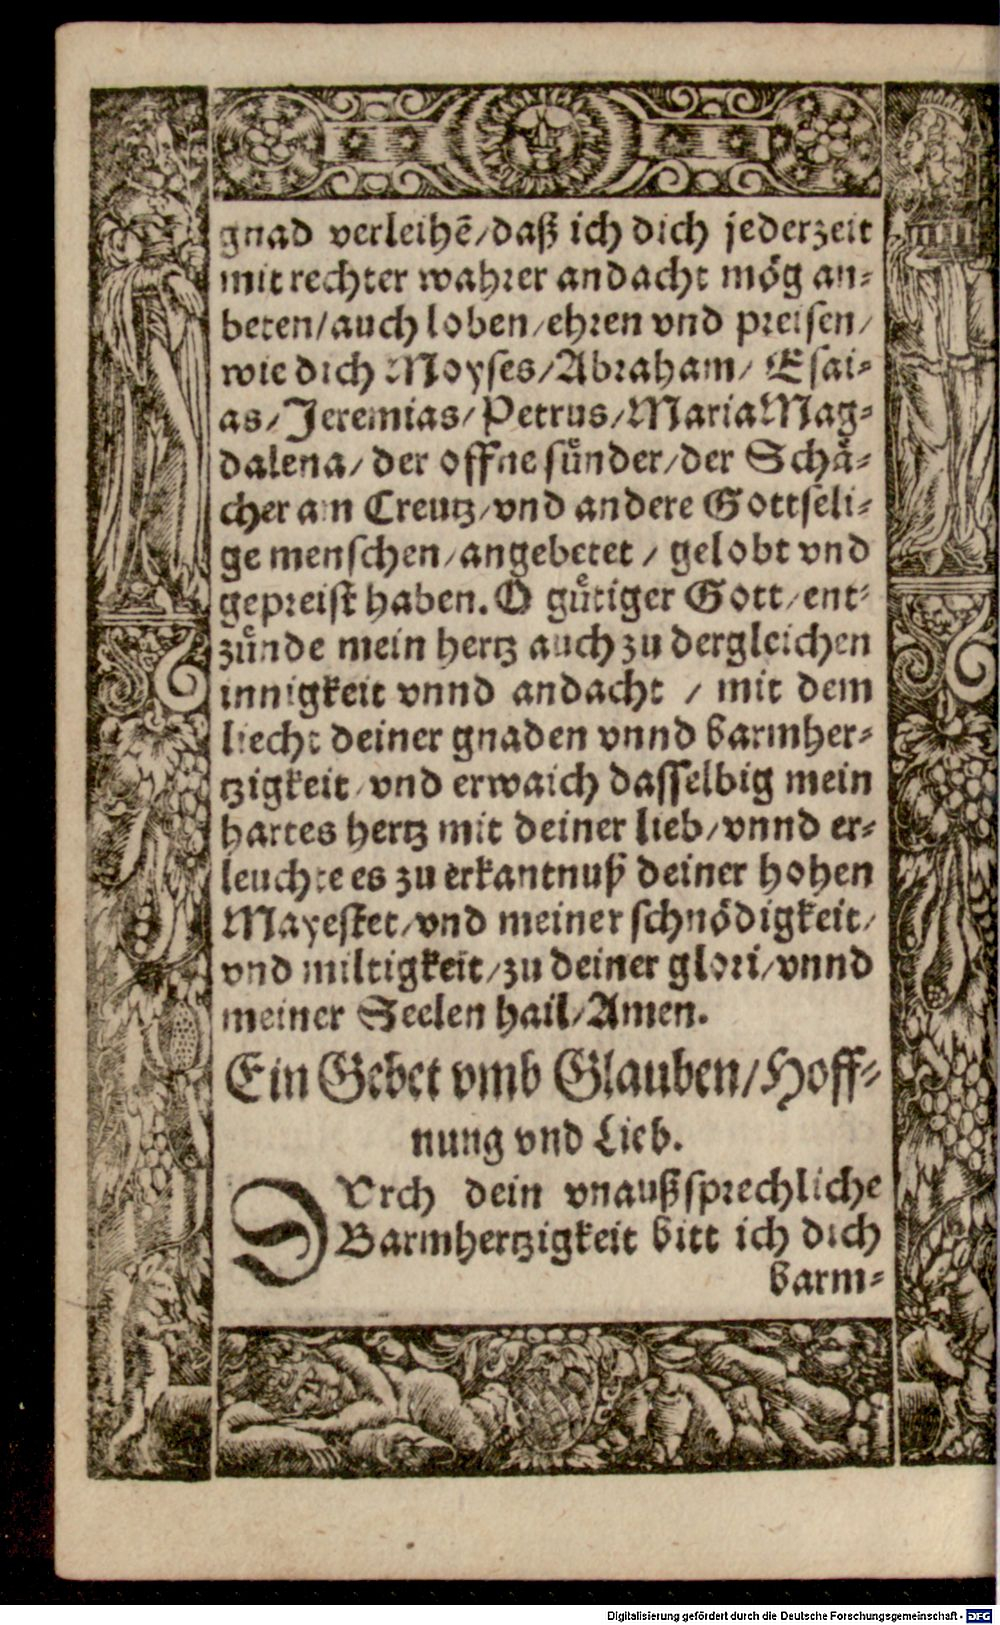 gnad verleihẽ/daß ich dich jederzeit
mit rechter wahrer andacht mög an-
beten/auch loben/ehren vnd preisen/
wie dich Moyses/Abraham/ Esai-
as/Jeremias/Petrus/Maria Mag-
dalena/ der offne sünder/der Schä-
cher am Creutz/vnd andere Gottseli-
ge menschen/angebetet / gelobt vnd
gepreist haben. O gütiger Gott/ent-
zünde mein hertz auch zu dergleichen
innigkeit vnnd andacht / mit dem
liecht deiner gnaden vnnd barmher-
tzigkeit/vnd erwaich dasselbig mein
hartes hertz mit deiner lieb/vnnd er-
leuchte es zu erkantnuß deiner hohen
Mayestet/vnd meiner schnödigkeit/
vnd miltigkeit/zu deiner glori/vnnd
meiner Seelen hail/Amen.
Ein Gebet vmb Glauben/Hoff-
nung vnd Lieb.
DVrch dein vnaußsprechliche
Barmhertzigkeit bitt ich dich
barm-
Digitalisierung gefördert durch die Deutsche Forschungsgemeinschaft - DFG